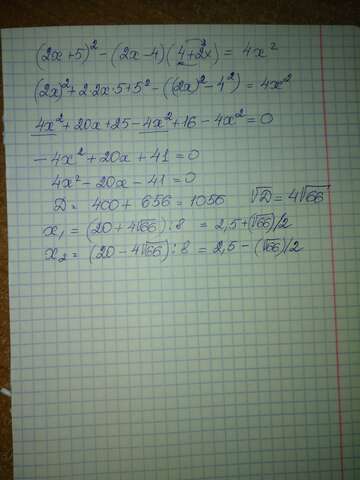 (2x+5)² - (2x-4)(4+2x) = 4x²
(2x)²+2·2x·5+5² - ((2x)²-4²) = 4x²
4x²+20x+25-4x²+16-4x²=0
-4x²+20x+41=0
4x²-20x-41=0
D = 400+656=1056 √D = 4√66
x₁ = (20+4√66):8 = 2,5+(√66)/2
x₂ = (20-4√66):8 = 2,5-(√66)/2